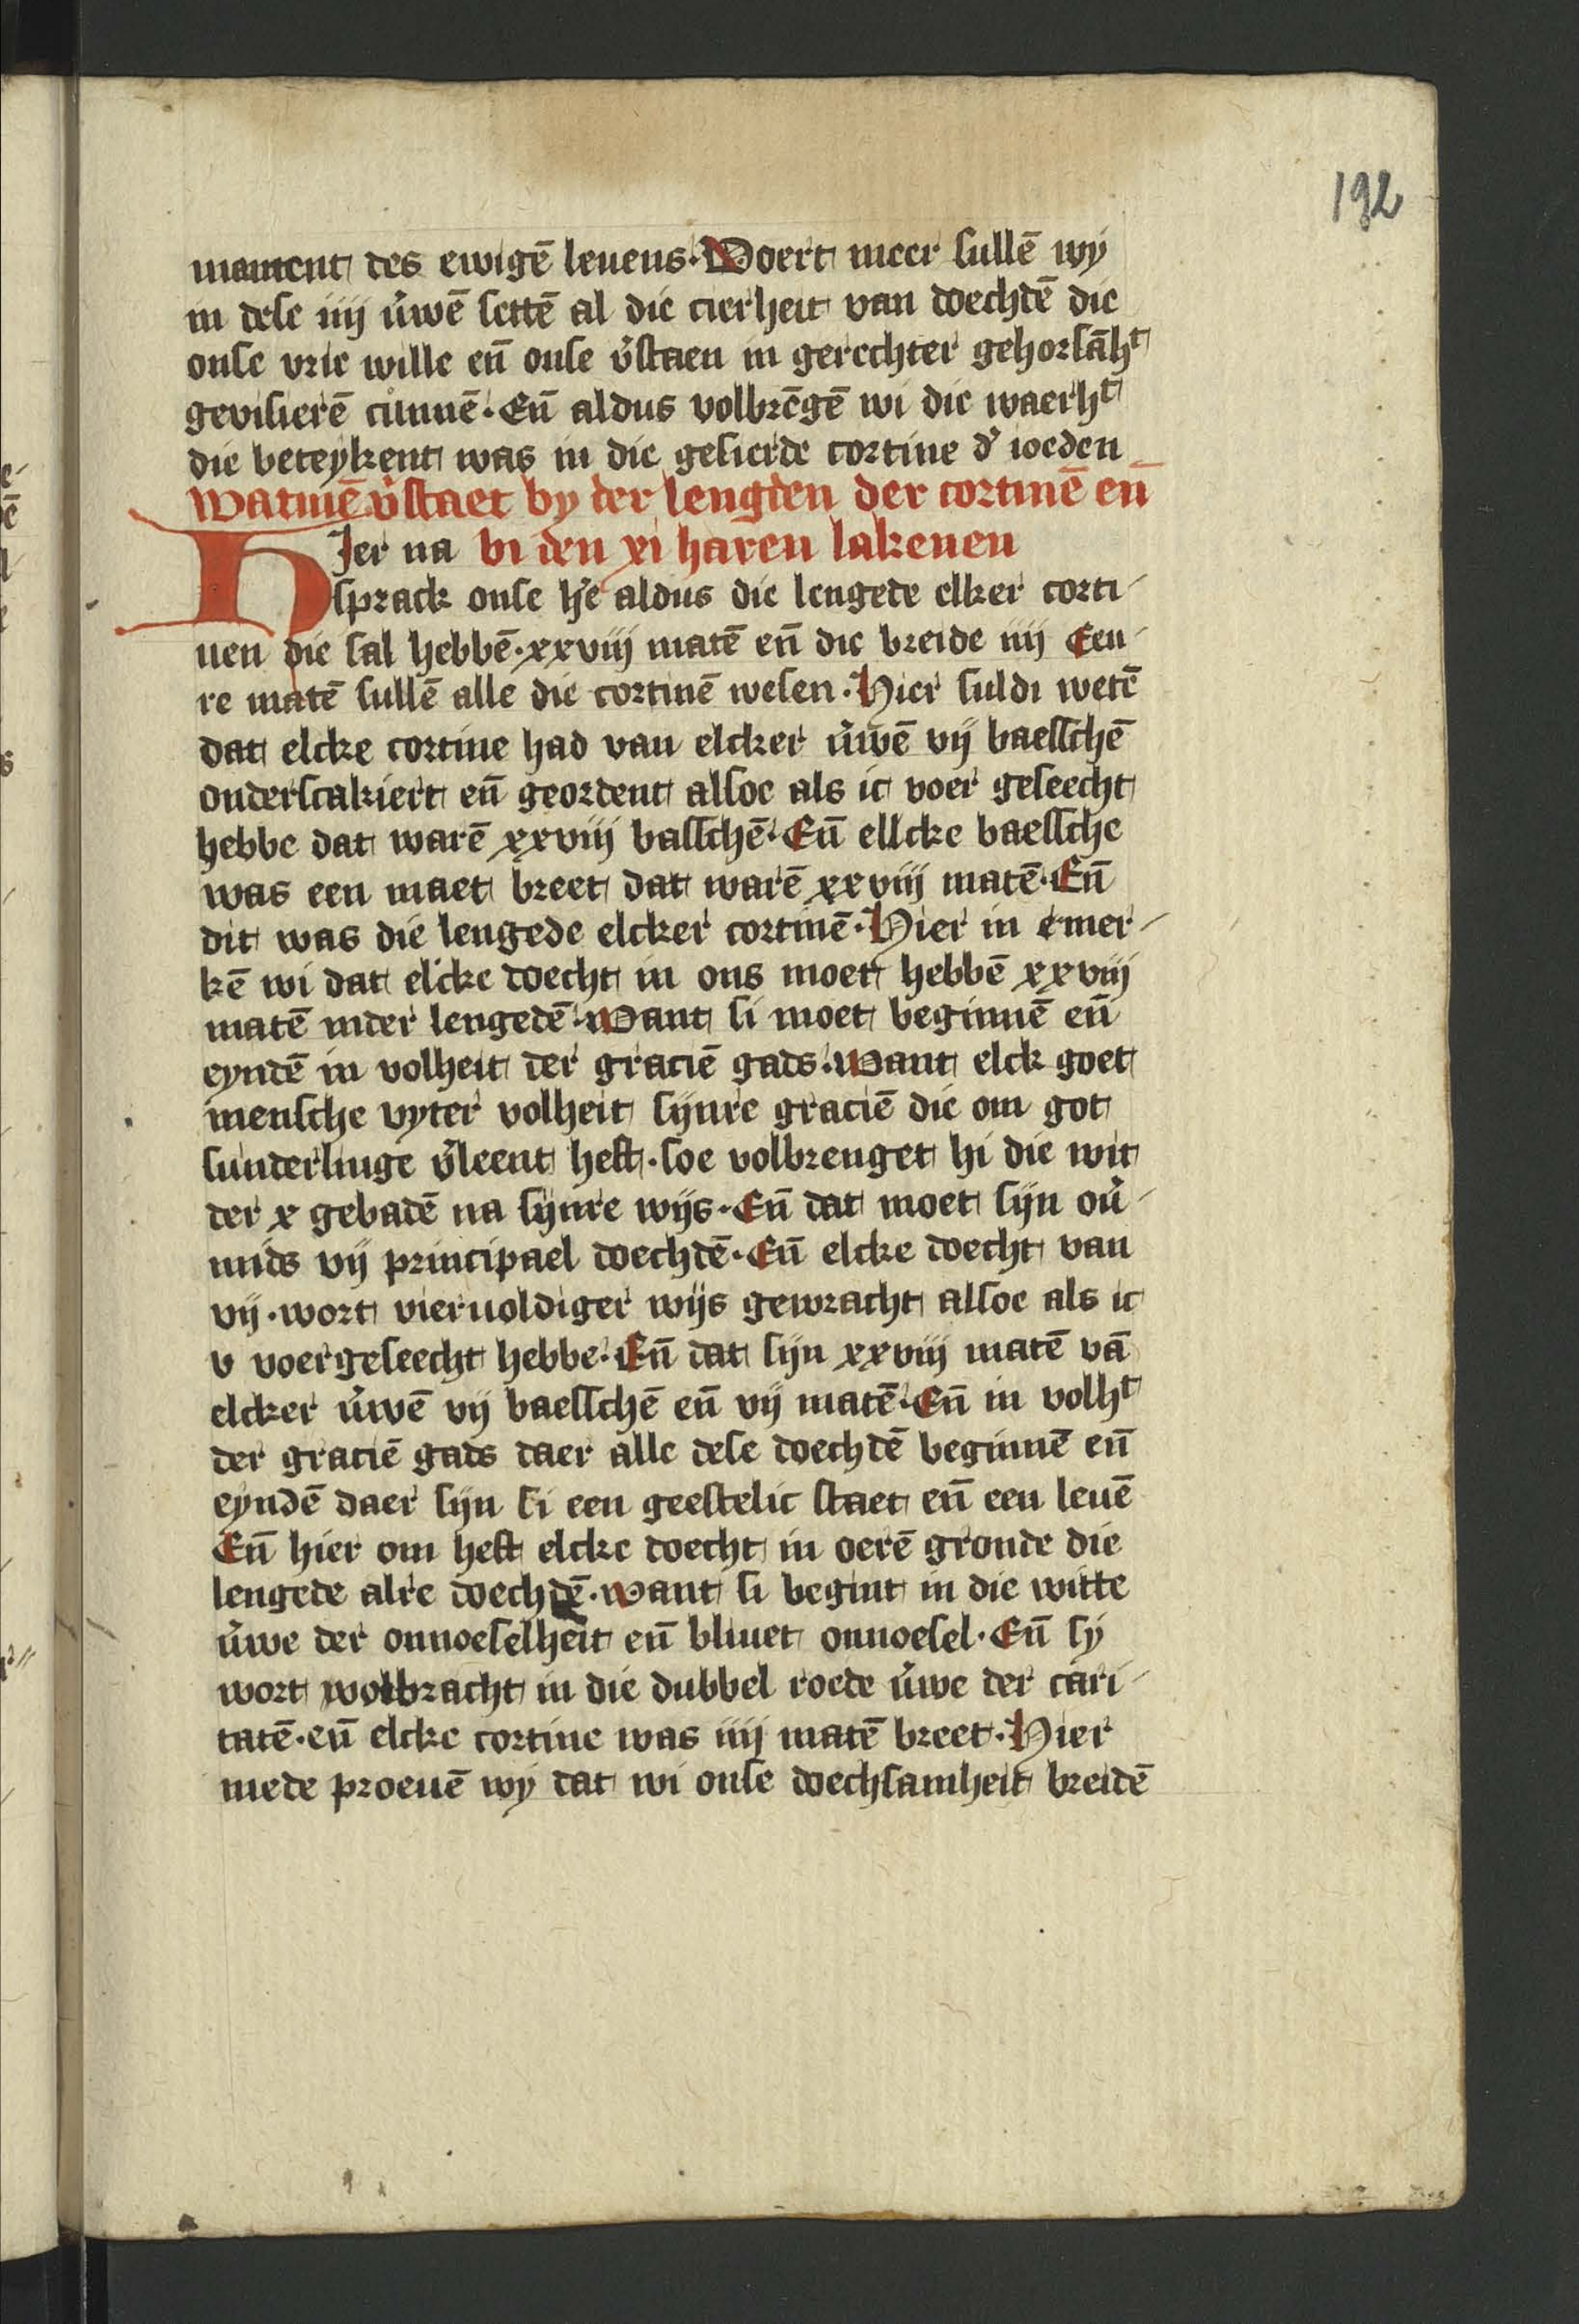 192
mament des ewigē leuens. Voert meer sullē wy
in dese iiij v̉wē settē al die cierheit van doechdē die
onse vrie wille en̄ onse v̉staen in gerechter gehorsāhᵗ
gevisierē cūnnē. En̄ aldus volbrēgē wi die waerhᵗ
die beteykent was in die gesierde cortine d̉ ioeden
Watmē v̉staet by der lengden der cortinē en̄
Hier na bi den xi haren lakenen
sprack onse h̉e aldus die lengede elker corti-
nen die sal hebbē. xxviij matē en̄ die breide iiij Een-
re matē sullē alle die cortinē wesen. Hier suldi wetē
dat elcke cortine had van elcker v̉wē vij baesschē
onderscakiert en̄ geordent alsoe als ic voer geseecht
hebbe dat warē xxviij basschē. En̄ ellcke baessche
was een maet breet dat warē xxviij matē. En̄
dit was die lengede elcker cortinē. Hier in emer-
kē wi dat elcke doecht in ons moet hebbē xxviij
matē inder lengedē. Want si moet beginnē en̄
eyndē in volheit der graciē gads. Want elck goet
mensche vyter volheit sijnre graciē die om got
sunderlinge v̉leent heft. soe volbrenget hi die wit
der x gebadē na sijnre wijs. En̄ dat moet sijn ov̉-
mids vij principael doechdē. En̄ elcke doecht van
vij. wort vieruoldiger wijs gewracht alsoe als ic
v voergeseecht hebbe. En̄ dat sijn xxviij matē vā
elcker v̉wē vij baesschē en̄ vij matē. En̄ in volhᵗ
der graciē gads daer alle dese doechdē beginnē en̄
eyndē daer sijn si een geestelic staet en̄ een leuē
En̄ hier om heft elcke doecht in oerē gronde die
lengede alre doechdē. want si begint in die witte
v̉we der onnoeselheit en̄ bliuet onnoesel. En̄ sy
wort wolbracht in die dubbel roede v̉we der cari-
tatē. en̄ elcke cortine was iiij matē breet. Hier
mede proeuē wy dat wi onse doechsamheit breidē